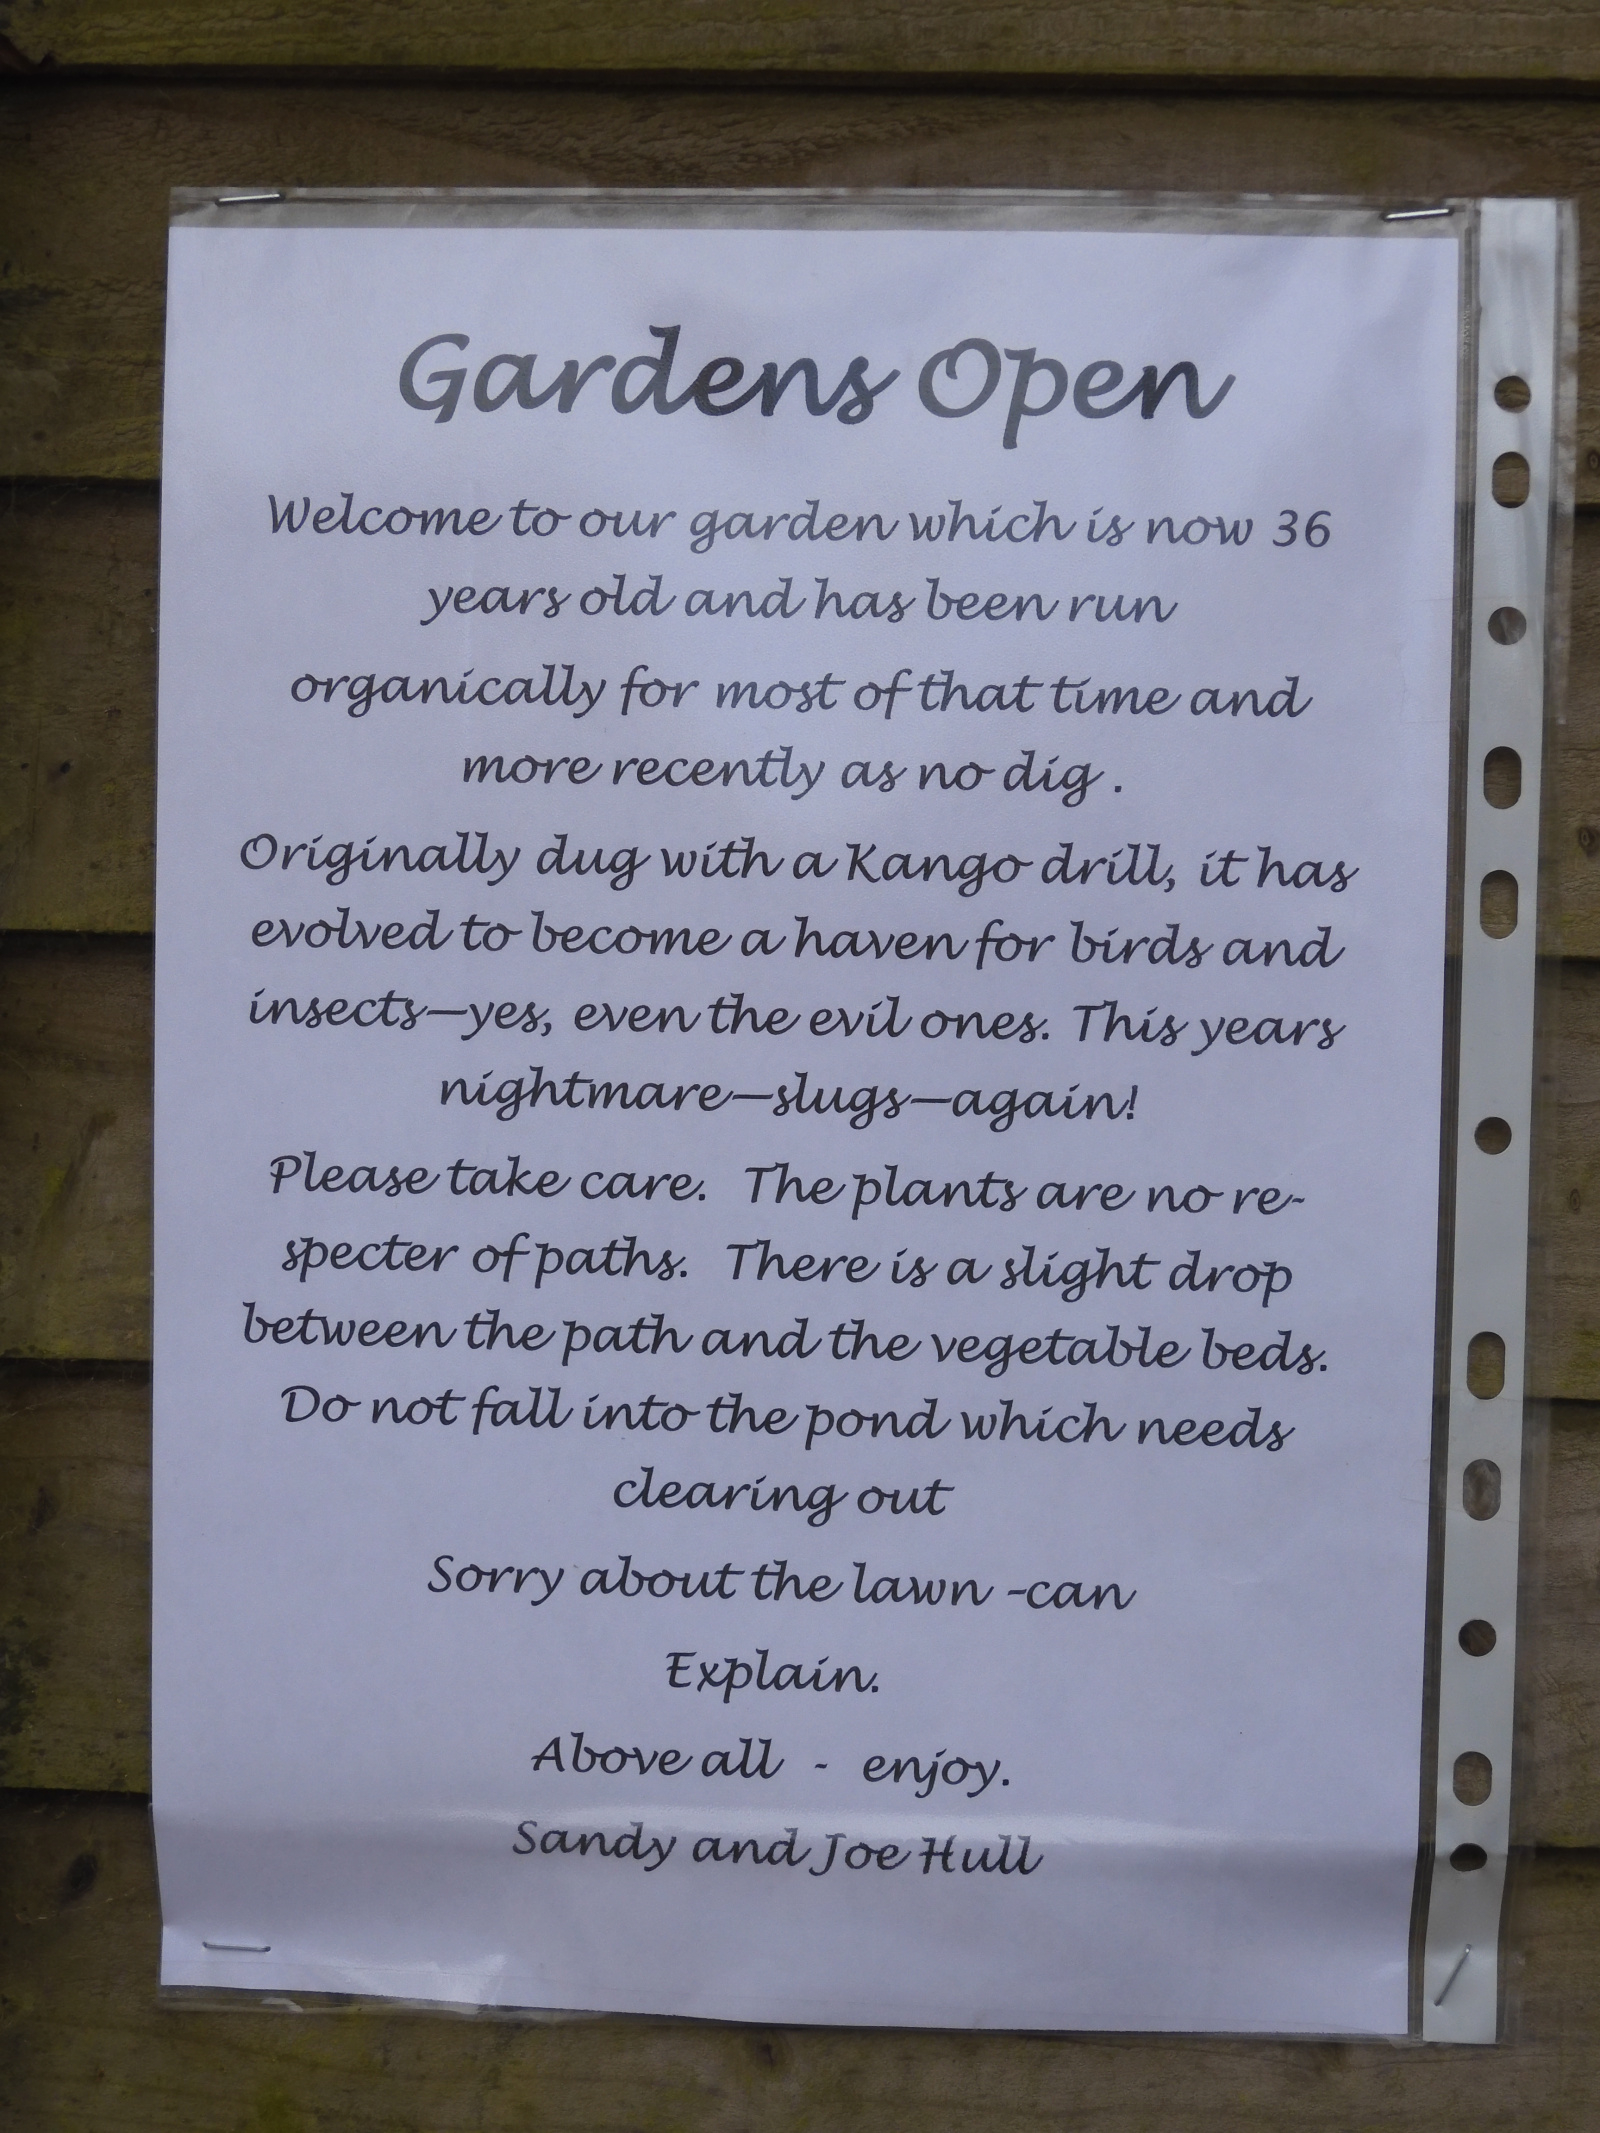 Gardens Open
Welcome to our garden which is now 36
years old and has been run
organically for most of that time and
more recently as no dig .
Originally dug with a Kango drill, it has
evolved to become a haven for birds and
insects—yes, even the evil ones. This years
nightmare—slugs—again!
Please take care.  The plants are no re-
specter of paths.  There is a slight drop
between the path and the vegetable beds.
Do not fall into the pond which needs
clearing out
Sorry about the lawn -can
Explain.
Above all  -  enjoy.
Sandy and Joe Hull